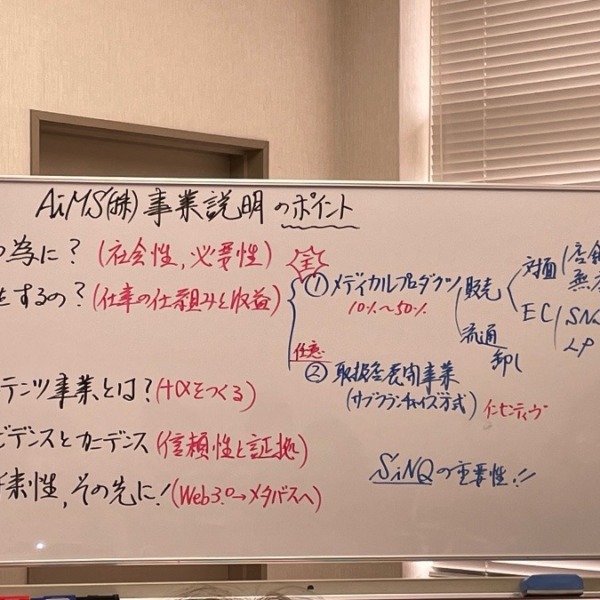 AiMS(株)事業説明のポイント
の為に？(社会性,必要性)
をするの？(仕事の仕組みと収益)
テンツ事業とは？(+αをつくる)
ビデンスとガーデンス(信頼性と証拠)
来性,その先に！(Web3.0→メタバスへ)
① メディカルプロダクツ
10%〜50%
販売
流通
卸し
対面
EC
SNS
LP
任意
② 取扱店展開事業
(サブフランチャイズ方式)
インセンティヴ
SiNQの重要性!!